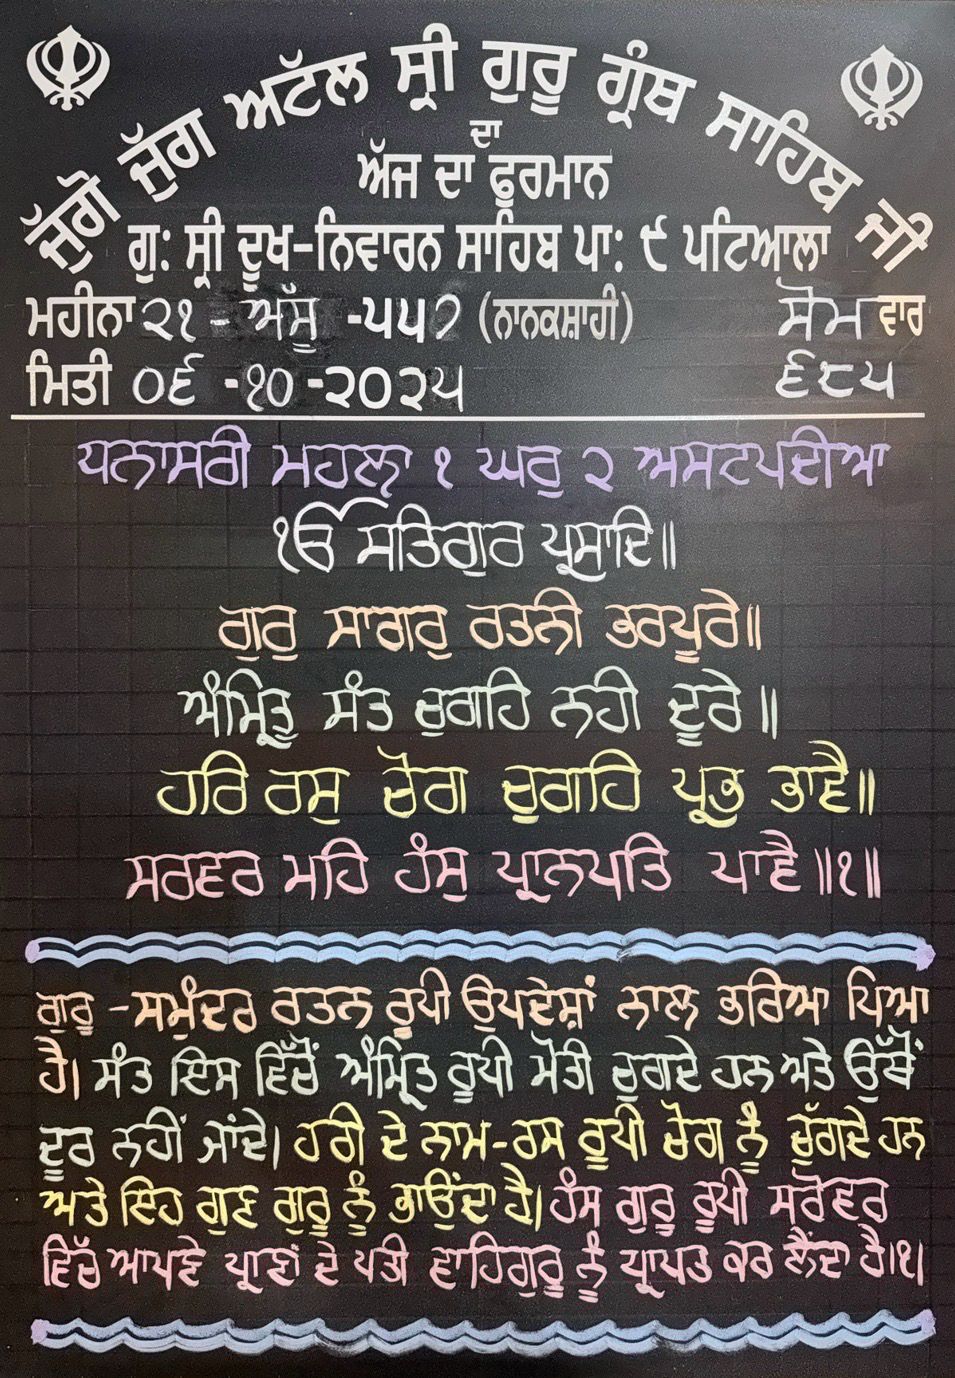 ਜੁੱਗੋ ਜੁੱਗ ਅਟੱਲ ਸ੍ਰੀ ਗੁਰੂ ਗ੍ਰੰਥ ਸਾਹਿਬ ਜੀ
ਦਾ
ਅੱਜ ਦਾ ਫੁਰਮਾਨ
ਗੁ: ਸ੍ਰੀ ਦੂਖ-ਨਿਵਾਰਨ ਸਾਹਿਬ ਪਾ: ੯ ਪਟਿਆਲਾ
ਮਹੀਨਾ ੨੧ - ਅੱਸੂ -੫੫੭ (ਨਾਨਕਸ਼ਾਹੀ) ਸੋਮ ਵਾਰ
ਮਿਤੀ ੦੬ -੧੦ -੨੦੨੫ ੬੮੫
ਧਨਾਸਰੀ ਮਹਲਾ ੧ ਘਰੁ ੨ ਅਸਟਪਦੀਆ
ੴ ਸਤਿਗੁਰ ਪ੍ਰਸਾਦਿ॥
ਗੁਰੁ ਸਾਗਰੁ ਰਤਨੀ ਭਰਪੂਰੇ॥
ਅੰਮ੍ਰਿਤੁ ਸੰਤ ਚੁਗਹਿ ਨਹੀ ਦੂਰੇ॥
ਹਰਿ ਰਸੁ ਚੋਗ ਚੁਗਹਿ ਪ੍ਰਭ ਭਾਵੈ॥
ਸਰਵਰ ਮਹਿ ਹੰਸੁ ਪ੍ਰਾਨਪਤਿ ਪਾਵੈ॥੧॥
ਗੁਰੂ -ਸਮੁੰਦਰ ਰਤਨ ਰੂਪੀ ਉਪਦੇਸ਼ਾਂ ਨਾਲ ਭਰਿਆ ਪਿਆ
ਹੈ। ਸੰਤ ਇਸ ਵਿੱਚੋਂ ਅੰਮ੍ਰਿਤ ਰੂਪੀ ਮੋਤੀ ਚੁਗਦੇ ਹਨ ਅਤੇ ਉੱਥੋਂ
ਦੂਰ ਨਹੀਂ ਜਾਂਦੇ। ਹਰੀ ਦੇ ਨਾਮ-ਰਸ ਰੂਪੀ ਚੋਗ ਨੂੰ ਚੁੱਗਦੇ ਹਨ
ਅਤੇ ਇਹ ਗੁਣ ਗੁਰੂ ਨੂੰ ਭਾਉਂਦਾ ਹੈ। ਹੰਸ ਗੁਰੂ ਰੂਪੀ ਸਰੋਵਰ
ਵਿੱਚ ਆਪਣੇ ਪ੍ਰਾਣਾਂ ਦੇ ਪਤੀ ਵਾਹਿਗੁਰੂ ਨੂੰ ਪ੍ਰਾਪਤ ਕਰ ਲੈਂਦਾ ਹੈ।੧।